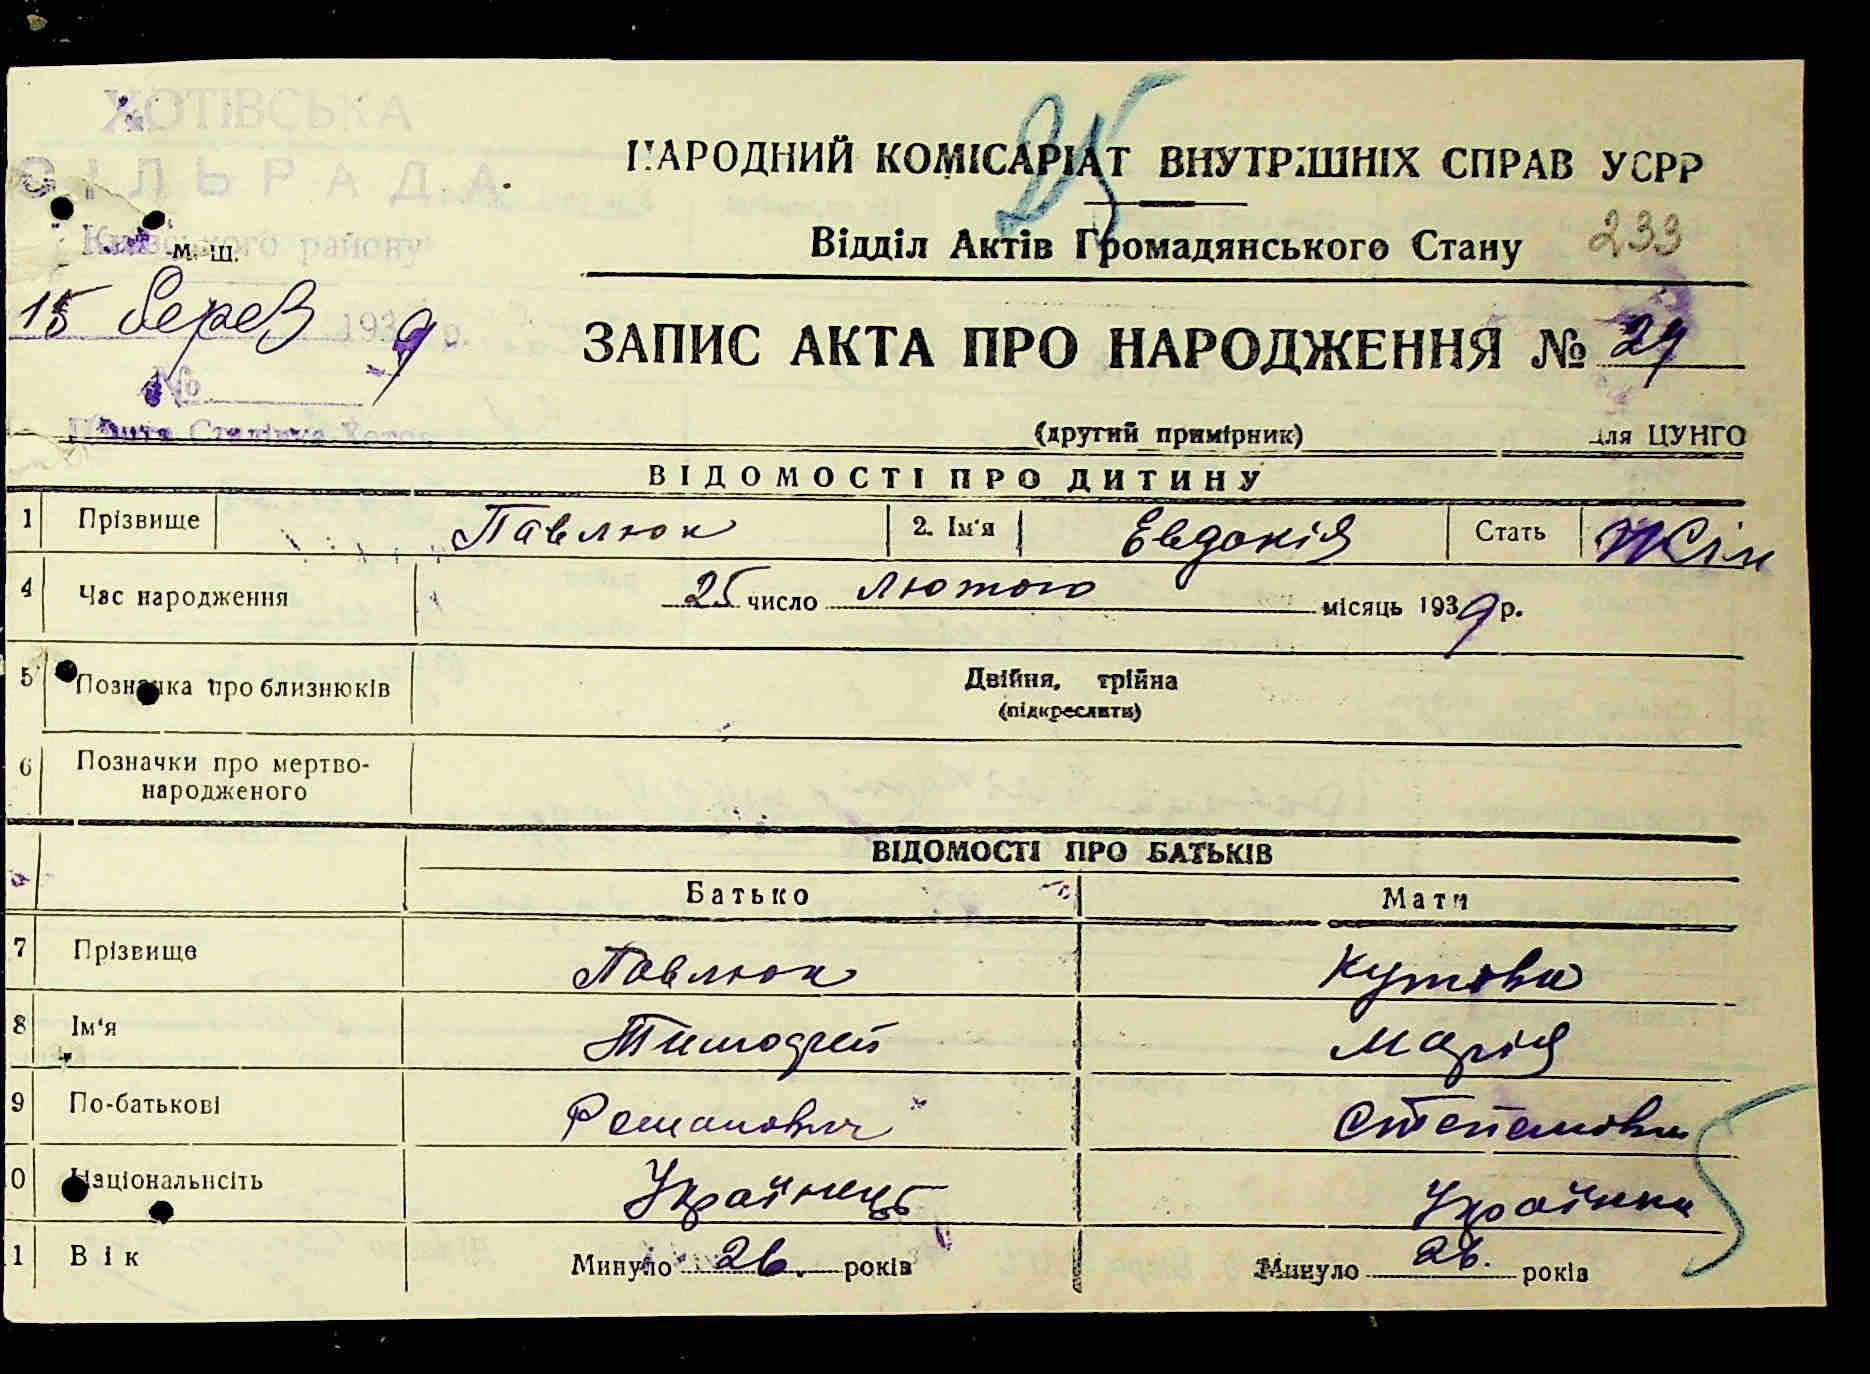 ХОТІВСЬКА
СІЛЬРАДА
Київського району
М. Ш.
15 берез 1939 р.
№
Пошта Сталінка-Хотов
25
НАРОДНИЙ КОМІСАРІАТ ВНУТРІШНІХ СПРАВ УСРР
Відділ Актів Громадянського Стану 233
ЗАПИС АКТА ПРО НАРОДЖЕННЯ № 29
(другий примірник) для ЦУНГО
ВІДОМОСТІ ПРО ДИТИНУ
1 Прізвище Павлюк 2. Ім'я Евдокія Стать Жін
4 Час народження 25 число лютого місяць 1939 р.
5 Позначка про близнюків Двійня, трійна
(підкреслити)
6 Позначки про мертво-
народженого
ВІДОМОСТІ ПРО БАТЬКІВ
Батько Мати
7 Прізвище Павлюк Кутова
8 Ім'я Тимофей Марія
9 По-батькові Романович Степановна
0 Національнсіть Українець Українка
1 Вік Минуло 26. років Минуло 26. років